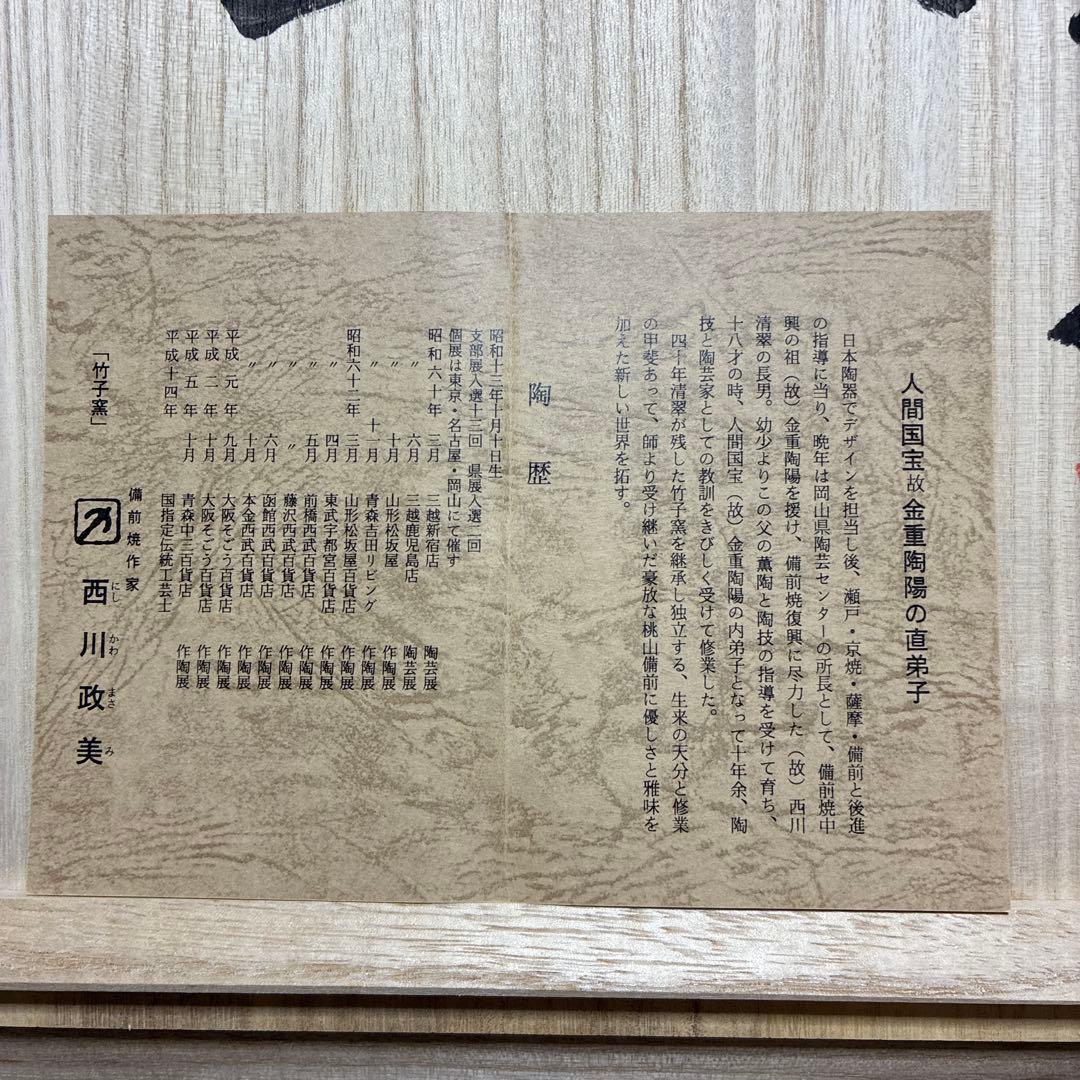 人間国宝故金重陶陽の直弟子
日本陶器でデザインを担当し後、瀬戸・京焼・薩摩・備前と後進
の指導に当り、晩年は岡山県陶芸センターの所長として、備前焼中
興の祖(故)金重陶陽を援け、備前焼復興に尽力した(故)西川
清翠の長男。幼少よりこの父の薫陶と陶技の指導を受けて育ち、
十八才の時、人間国宝(故)金重陶陽の内弟子となって十年余、陶
技と陶芸家としての教訓をきびしく受けて修業した。
四十年清翠が残した竹子窯を継承し独立する、生来の天分と修業
の甲斐あって、師より受け継いだ豪放な桃山備前に優しさと雅味を
加えた新しい世界を拓す。
陶歴
昭和十二年十月十日生
支部展入選十三回 県展入選二回
個展は東京・名古屋・岡山にて催す
昭和六十年 三月 三越新宿店 陶芸展
〃 六月 三越鹿児島店 陶芸展
〃 十月 山形松坂屋 作陶展
〃 十一月 青森吉田リビング 作陶展
昭和六十二年 三月 山形松坂屋百貨店 作陶展
〃 四月 東武宇都宮百貨店 作陶展
〃 五月 前橋西武百貨店 作陶展
〃 〃 藤沢西武百貨店 作陶展
〃 六月 函館西武百貨店 作陶展
〃 十月 本金西武百貨店 作陶展
平成元年 九月 大阪そごう百貨店 作陶展
平成二年 十月 大阪そごう百貨店 作陶展
平成五年 十月 青森中三百貨店 作陶展
平成十四年 国指定伝統工芸士
備前焼作家
「竹子窯」 西川政美
にしかわまさみ